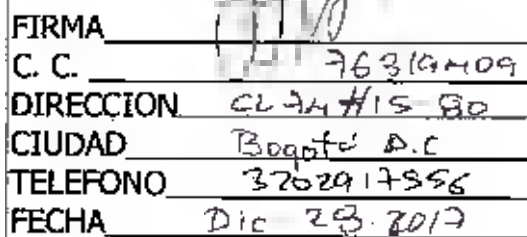 FIRMA
C. C. 76319409
DIRECCION CL 74 #15-80
CIUDAD Bogotá D.C
TELEFONO 3202917556
FECHA Dic-28-2017